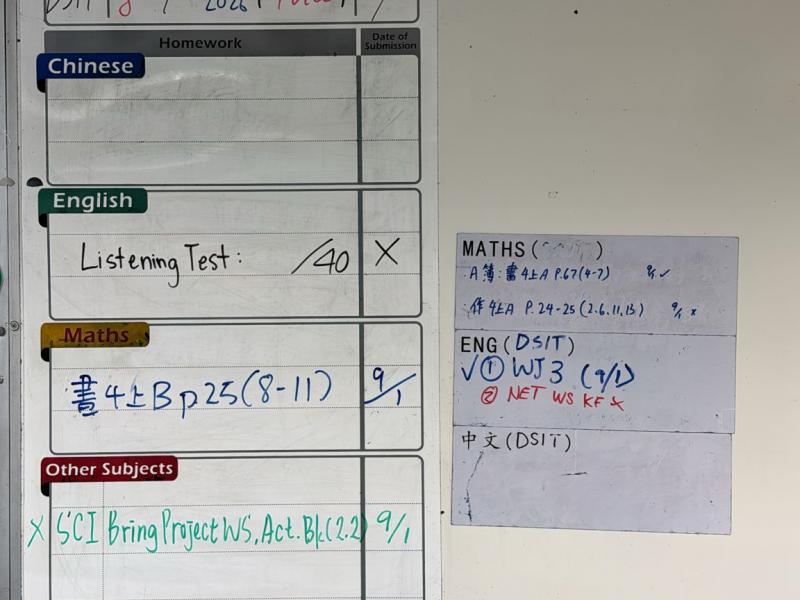 DSIT 8 / 2026
Homework
Date of Submission
Chinese
English
Listening Test: /40 X
Maths
書4上B p25(8-11) 9/1
Other Subjects
X SCI Bring Project WS, Act. Bk(2.2) 9/1
MATHS( )
A簿:書4上A P.67(4-7) 9/1 ✓
作4上A P.24-25(2.6.11.13) 9/1 x
ENG(DSIT)
✓① WJ3 (9/1)
② NET WS KF x
中文(DSIT)